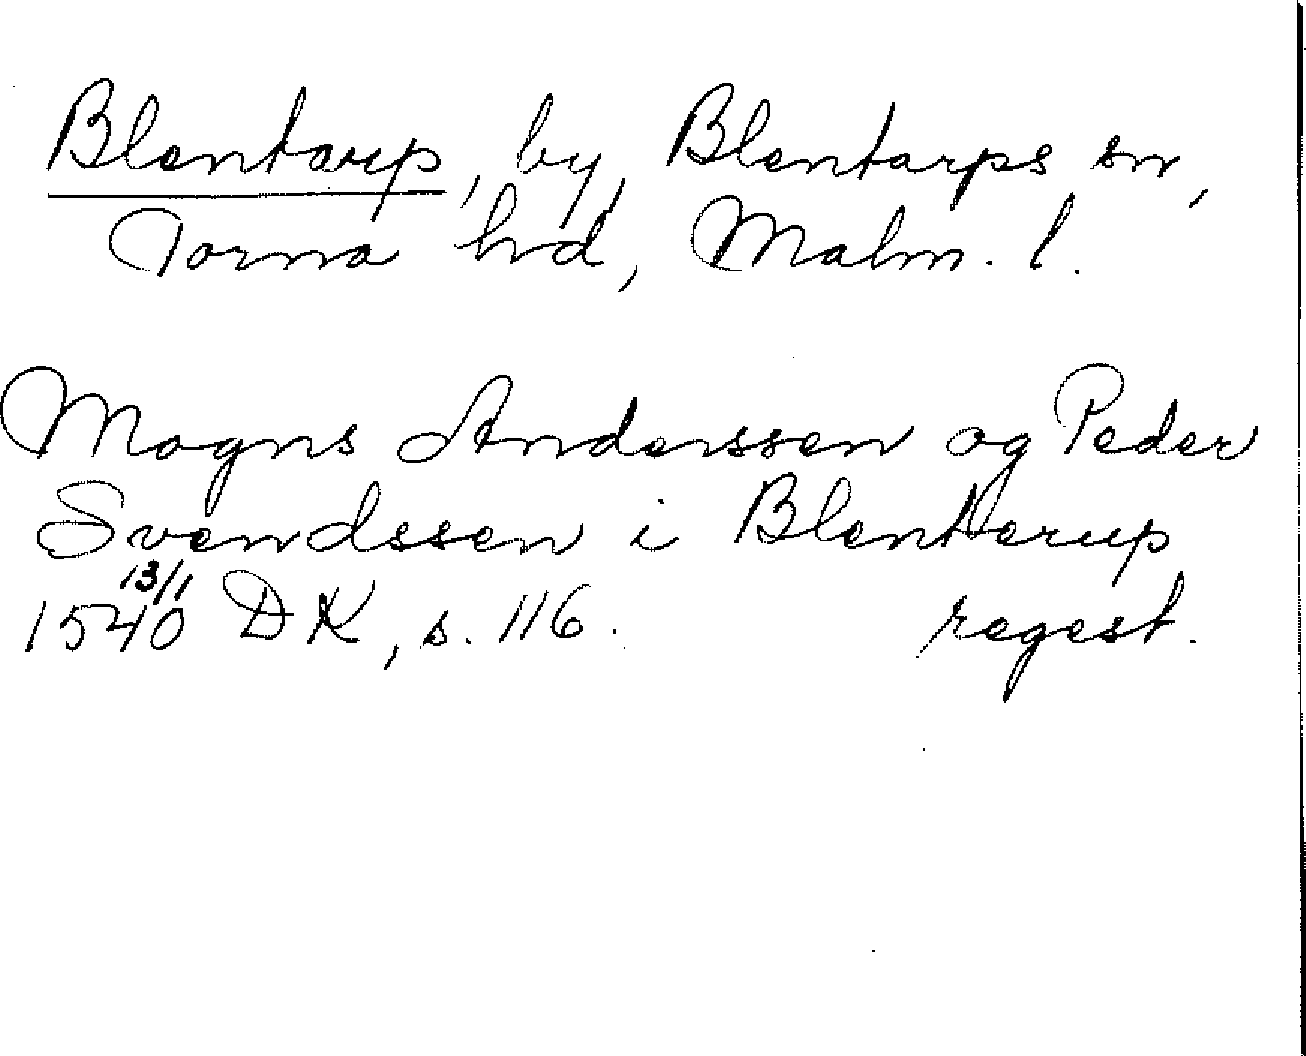 Blentarp, by, Blentarps sn,
Torna hd, Malm. l.
Mogns Anderssen og Peder
Svendssen i Blenterup
13/1
1540 DK, s. 116. regest.